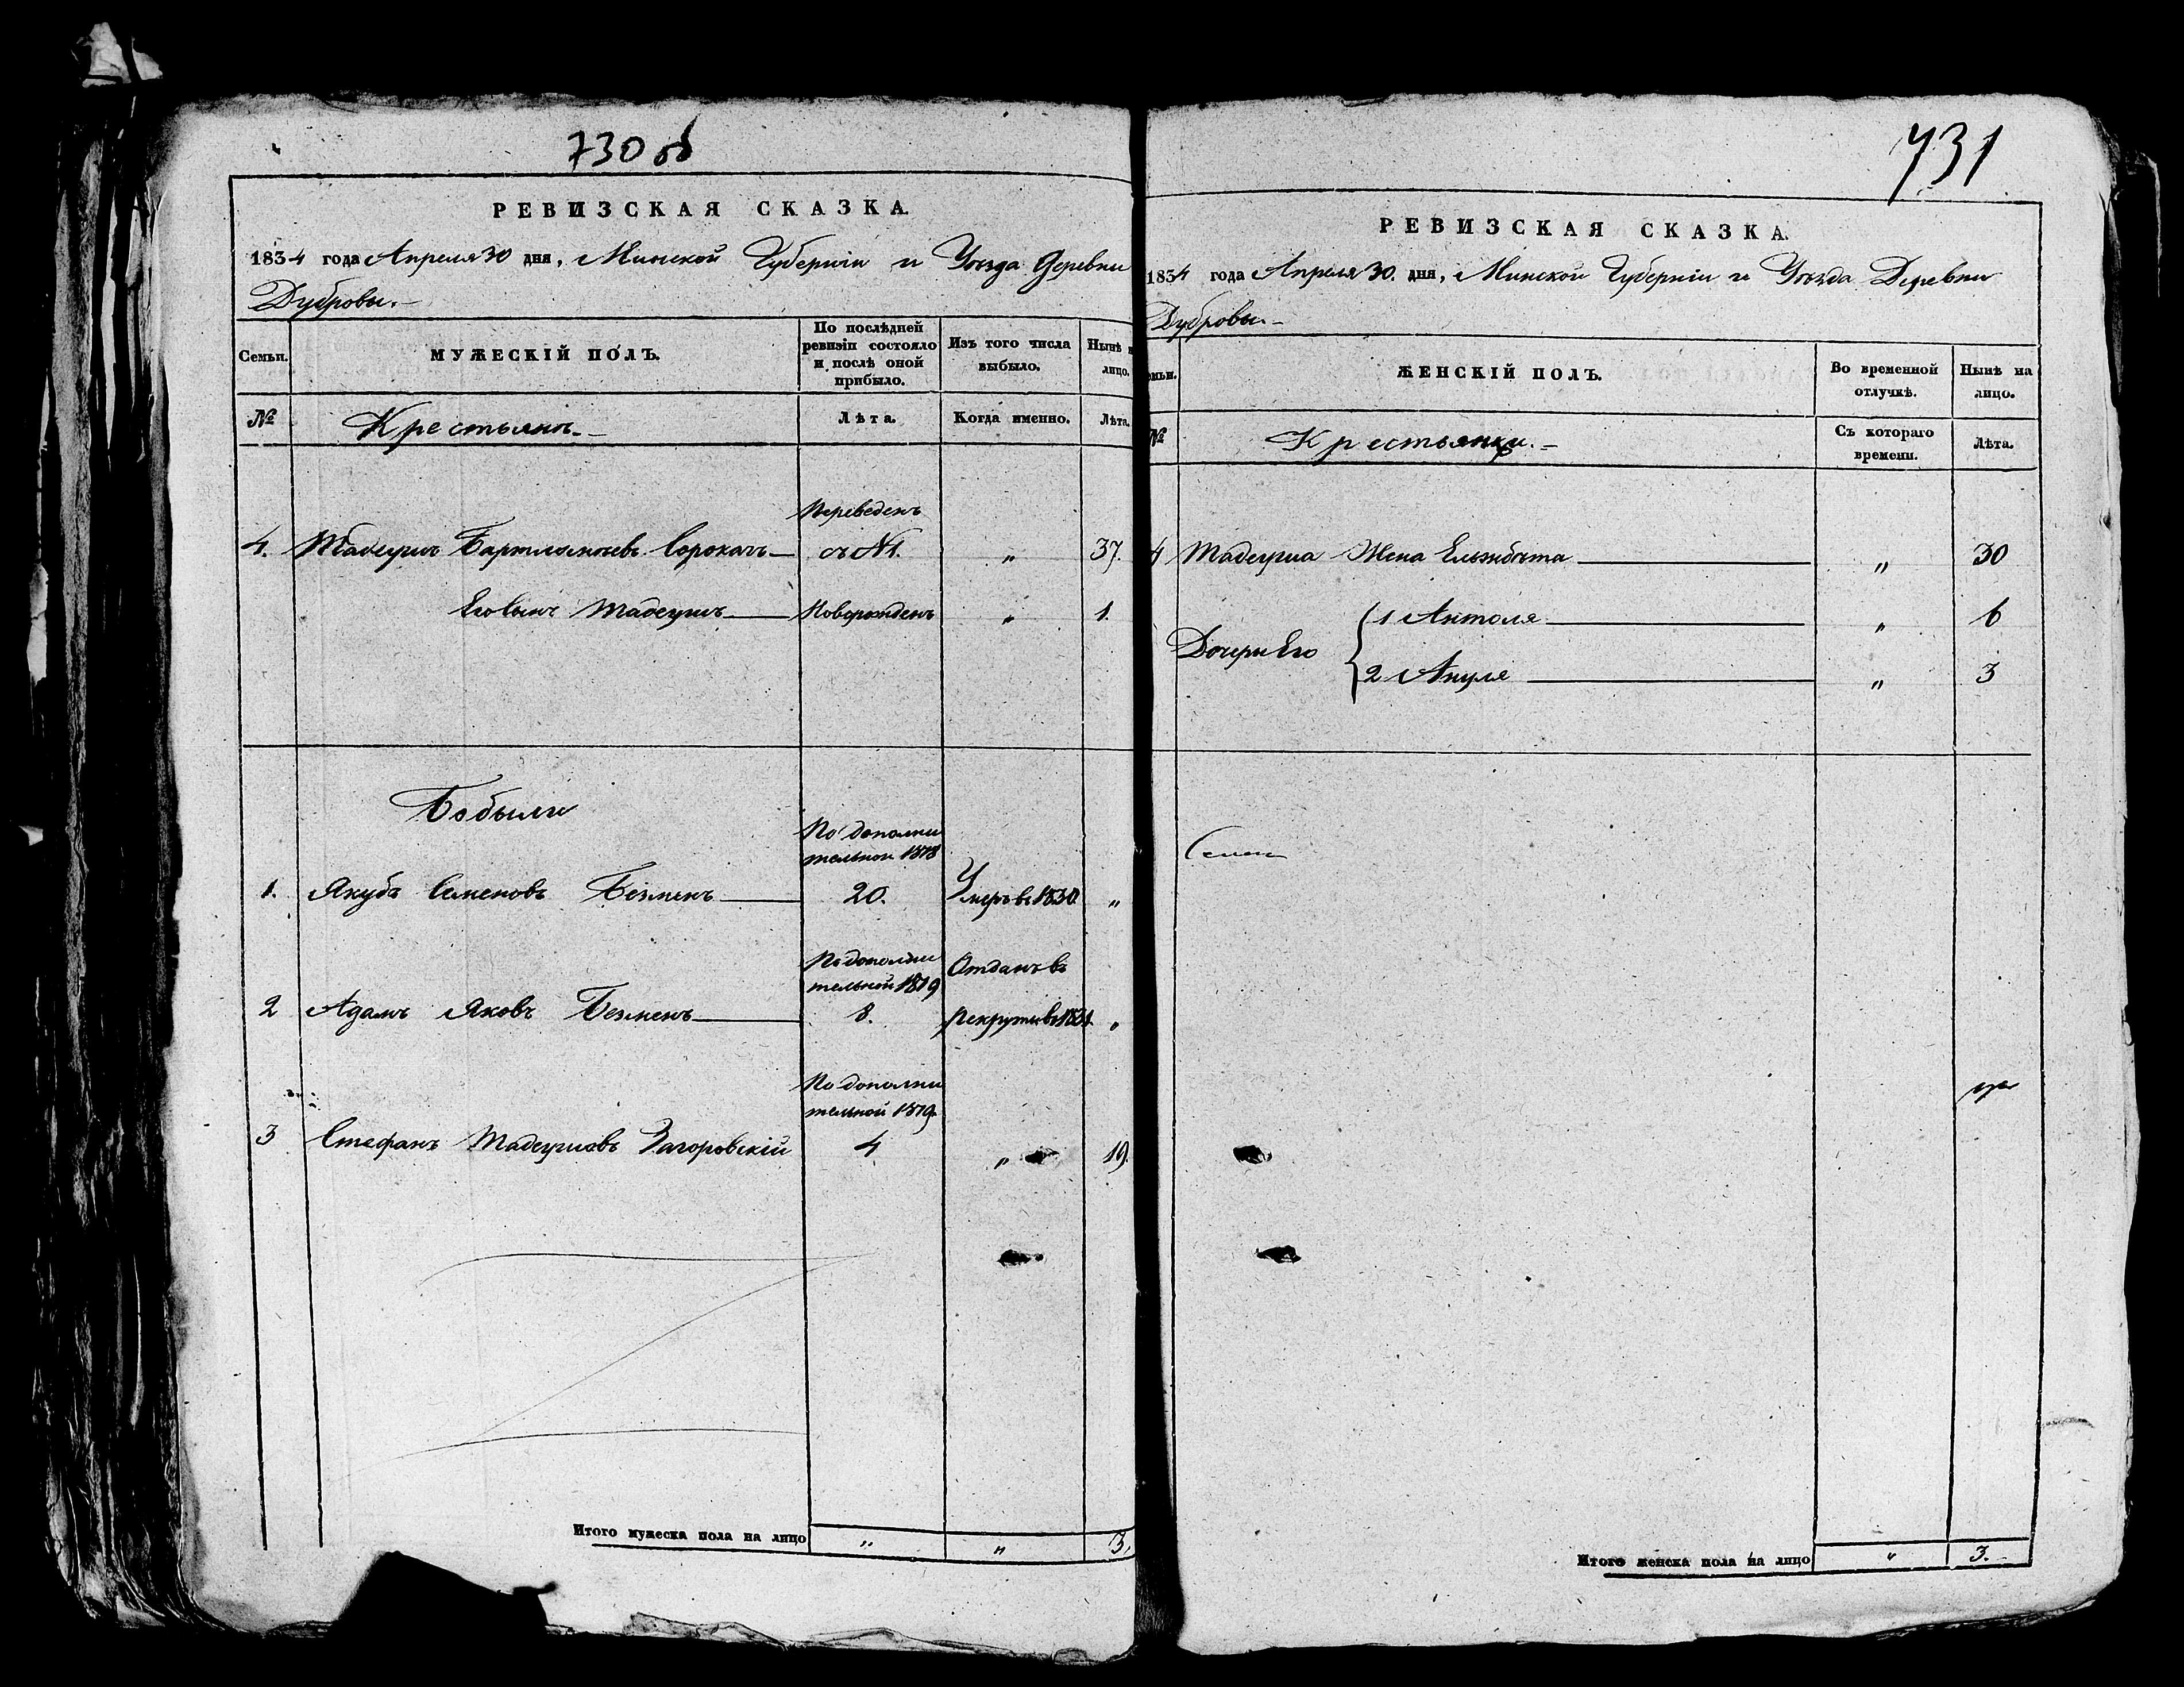 730 об
РЕВИЗСКАЯ СКАЗКА.
1834 года Апреля 30 дня, Минской Губернiи и Уѣзда Деревни
Дубровы.
Семьи. МУЖЕСКІЙ ПОЛЪ. По послѣдней ревизіи состояло и послѣ оной прибыло. Изъ того числа выбыло. Нынѣ на лицо.
№ Крестьянъ. Лѣта. Когда именно. Лѣта.
Переведенъ
4. Тадеушъ Бартломѣевъ Сорокачъ съ №1. „ 37.
Его Сынъ Тадеушъ Новорожденъ „ 1.
Бобыли
По дополни
тельной 1818
1. Якубъ Семеновъ Безменъ 20. Умеръ въ 1830. „
По дополни Отданъ въ
тельной 1819
2 Адамъ Яковъ Безменъ 8. рекруты въ 1831. „
По дополни
тельной 1819.
3 Стефанъ Тадеушовъ Загоровскій 4 „ 19.
Итого мужеска пола на лицо „ „ 3.
731
РЕВИЗСКАЯ СКАЗКА.
1834 года Апреля 30. дня, Минской Губернiи и Уѣзда Деревни
Дубровы.
ЖЕНСКІЙ ПОЛЪ. Во временной отлучкѣ. Нынѣ на лицо.
№ Крестьянки. Съ котораго времени. Лѣта.
4 Тадеуша Жена Ельжбѣта „ 30
Дочери Его 1 Антоля „ 6
2 Ануля „ 3
Итого женска пола на лицо „ 3.